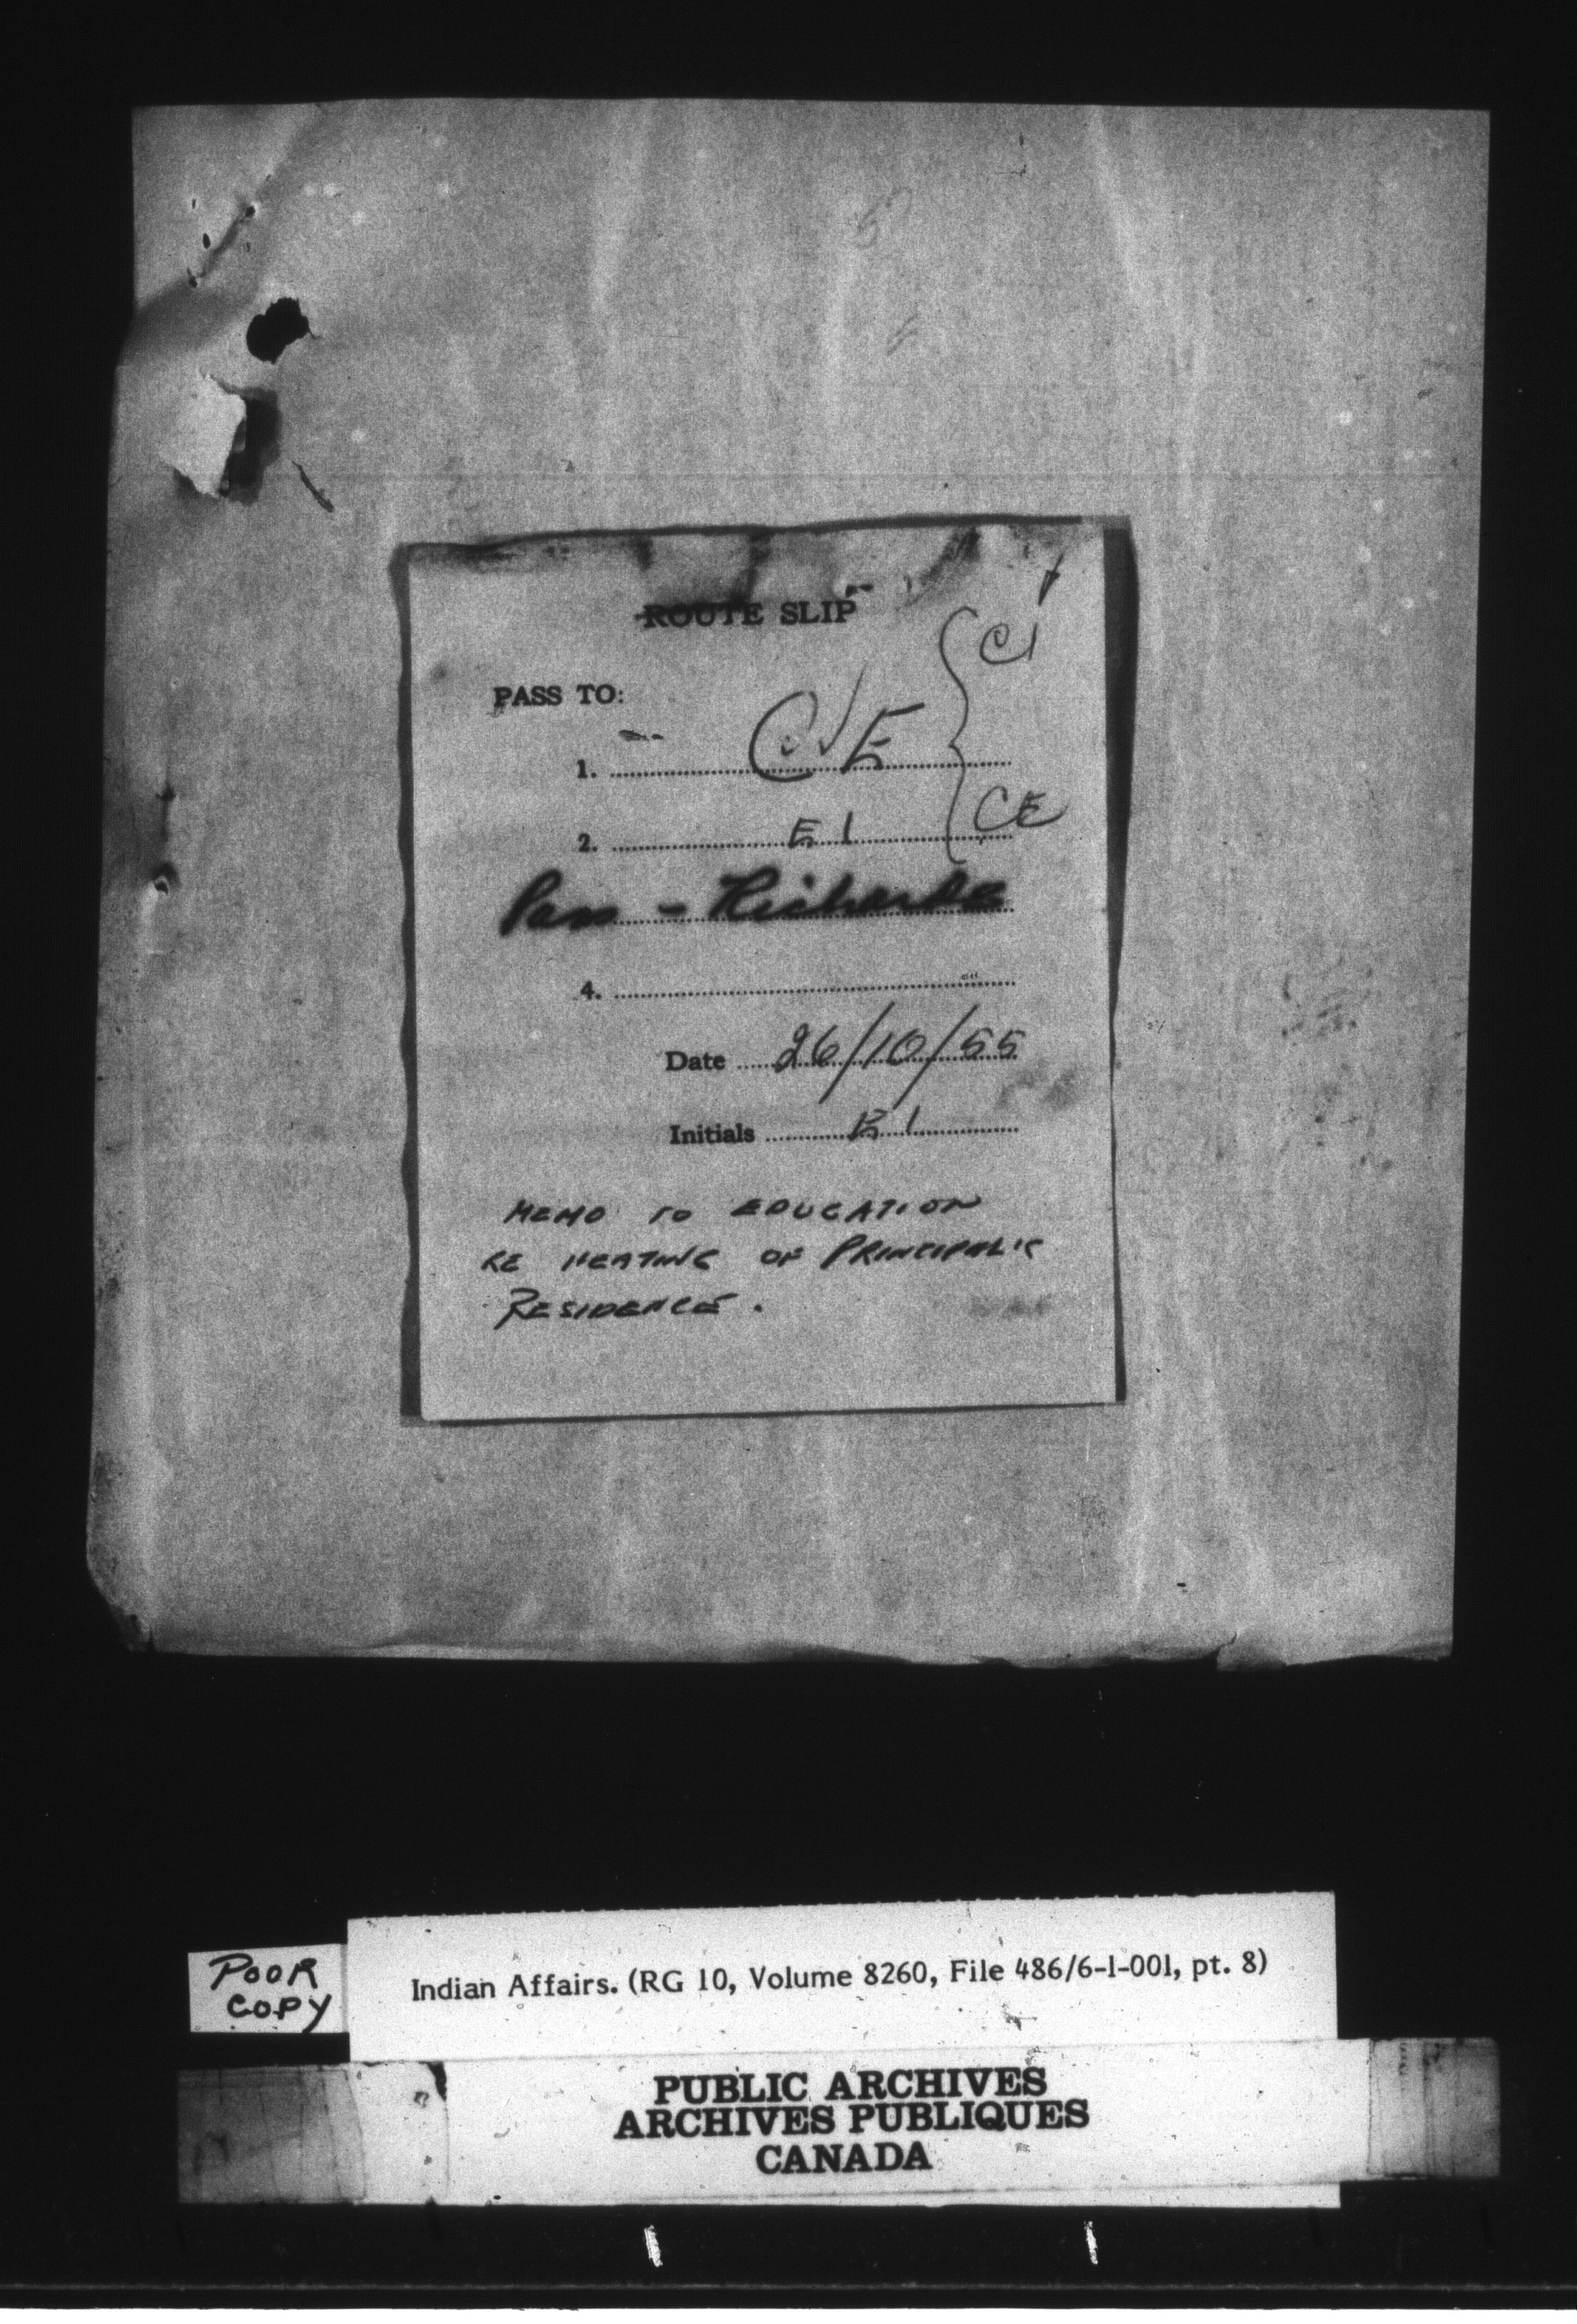 ROUTE SLIP
C1
PASS TO:
1. C.E
2. E 1
CE
Pass - Richards
4.
Date 26/10/55
Initials E 1
MEMO TO EDUCATION
RE HEATING OF PRINCIPAL'S
RESIDENCE.
POOR
COPY
Indian Affairs. (RG 10, Volume 8260, File 486/6-1-001, pt. 8)
PUBLIC ARCHIVES
ARCHIVES PUBLIQUES
CANADA